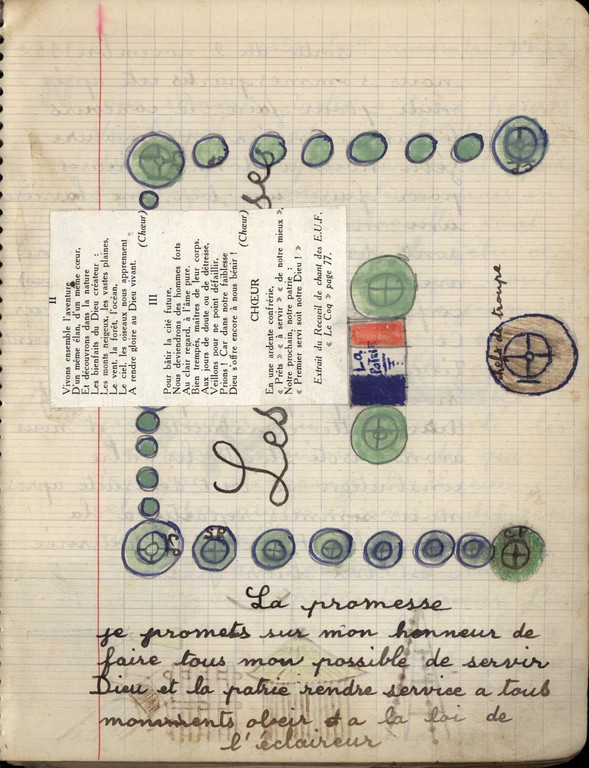 ses
II
Vivons ensemble l'aventure
D'un même élan, d'un même cœur,
Et découvrons dans la nature
Les bienfaits du Dieu créateur :
Les monts neigeux, les vastes plaines,
Le vent, la forêt, l'océan,
Le ciel, les oiseaux nous apprennent
A rendre gloire au Dieu vivant.
(Chœur)
III
Pour bâtir la cité future,
Nous deviendrons des hommes forts
Au clair regard, à l'âme pure,
Bien trempés, maîtres de leur corps.
Aux jours de doute ou de détresse,
Veillons pour ne point défaillir,
Prions ! Car dans notre faiblesse
Dieu s'offre encore à nous bénir !
(Chœur)
CHŒUR
En une ardente confrérie,
« Prêts » « à servir » « de notre mieux »,
Notre prochain, notre patrie :
« Premier servi soit notre Dieu ! »
Extrait du Recueil de chant des E.U.F.
« Le Coq » page 77.
La
Patrie
chefs de troupe
Les
CP
SP
CP
La promesse
je promets sur mon honneur de
faire tous mon possible de servir
Dieu et la patrie rendre service a tout
monuments obeir a la loi de
l'éclaireur